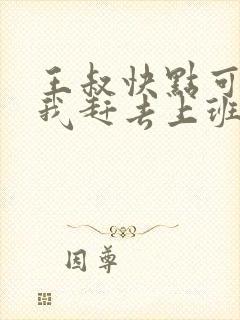 王叔快點可
我赶去上班
因尊